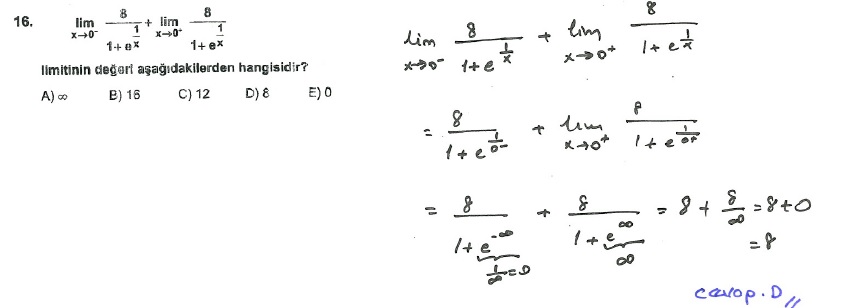 16. lim x→0⁻ 8/(1+e^(1/x)) + lim x→0⁺ 8/(1+e^(1/x))
limitinin değeri aşağıdakilerden hangisidir?
A) ∞ B) 16 C) 12 D) 8 E) 0
lim x→0⁻ 8/(1+e^(1/x)) + lim x→0⁺ 8/(1+e^(1/x))
= 8/(1+e^(1/0⁻)) + lim x→0⁺ 8/(1+e^(1/0⁺))
= 8/(1+e^(-∞)) + 8/(1+e^∞) = 8 + 8/∞ = 8+0
1/∞ = 0 ∞ = 8
cevap. D //